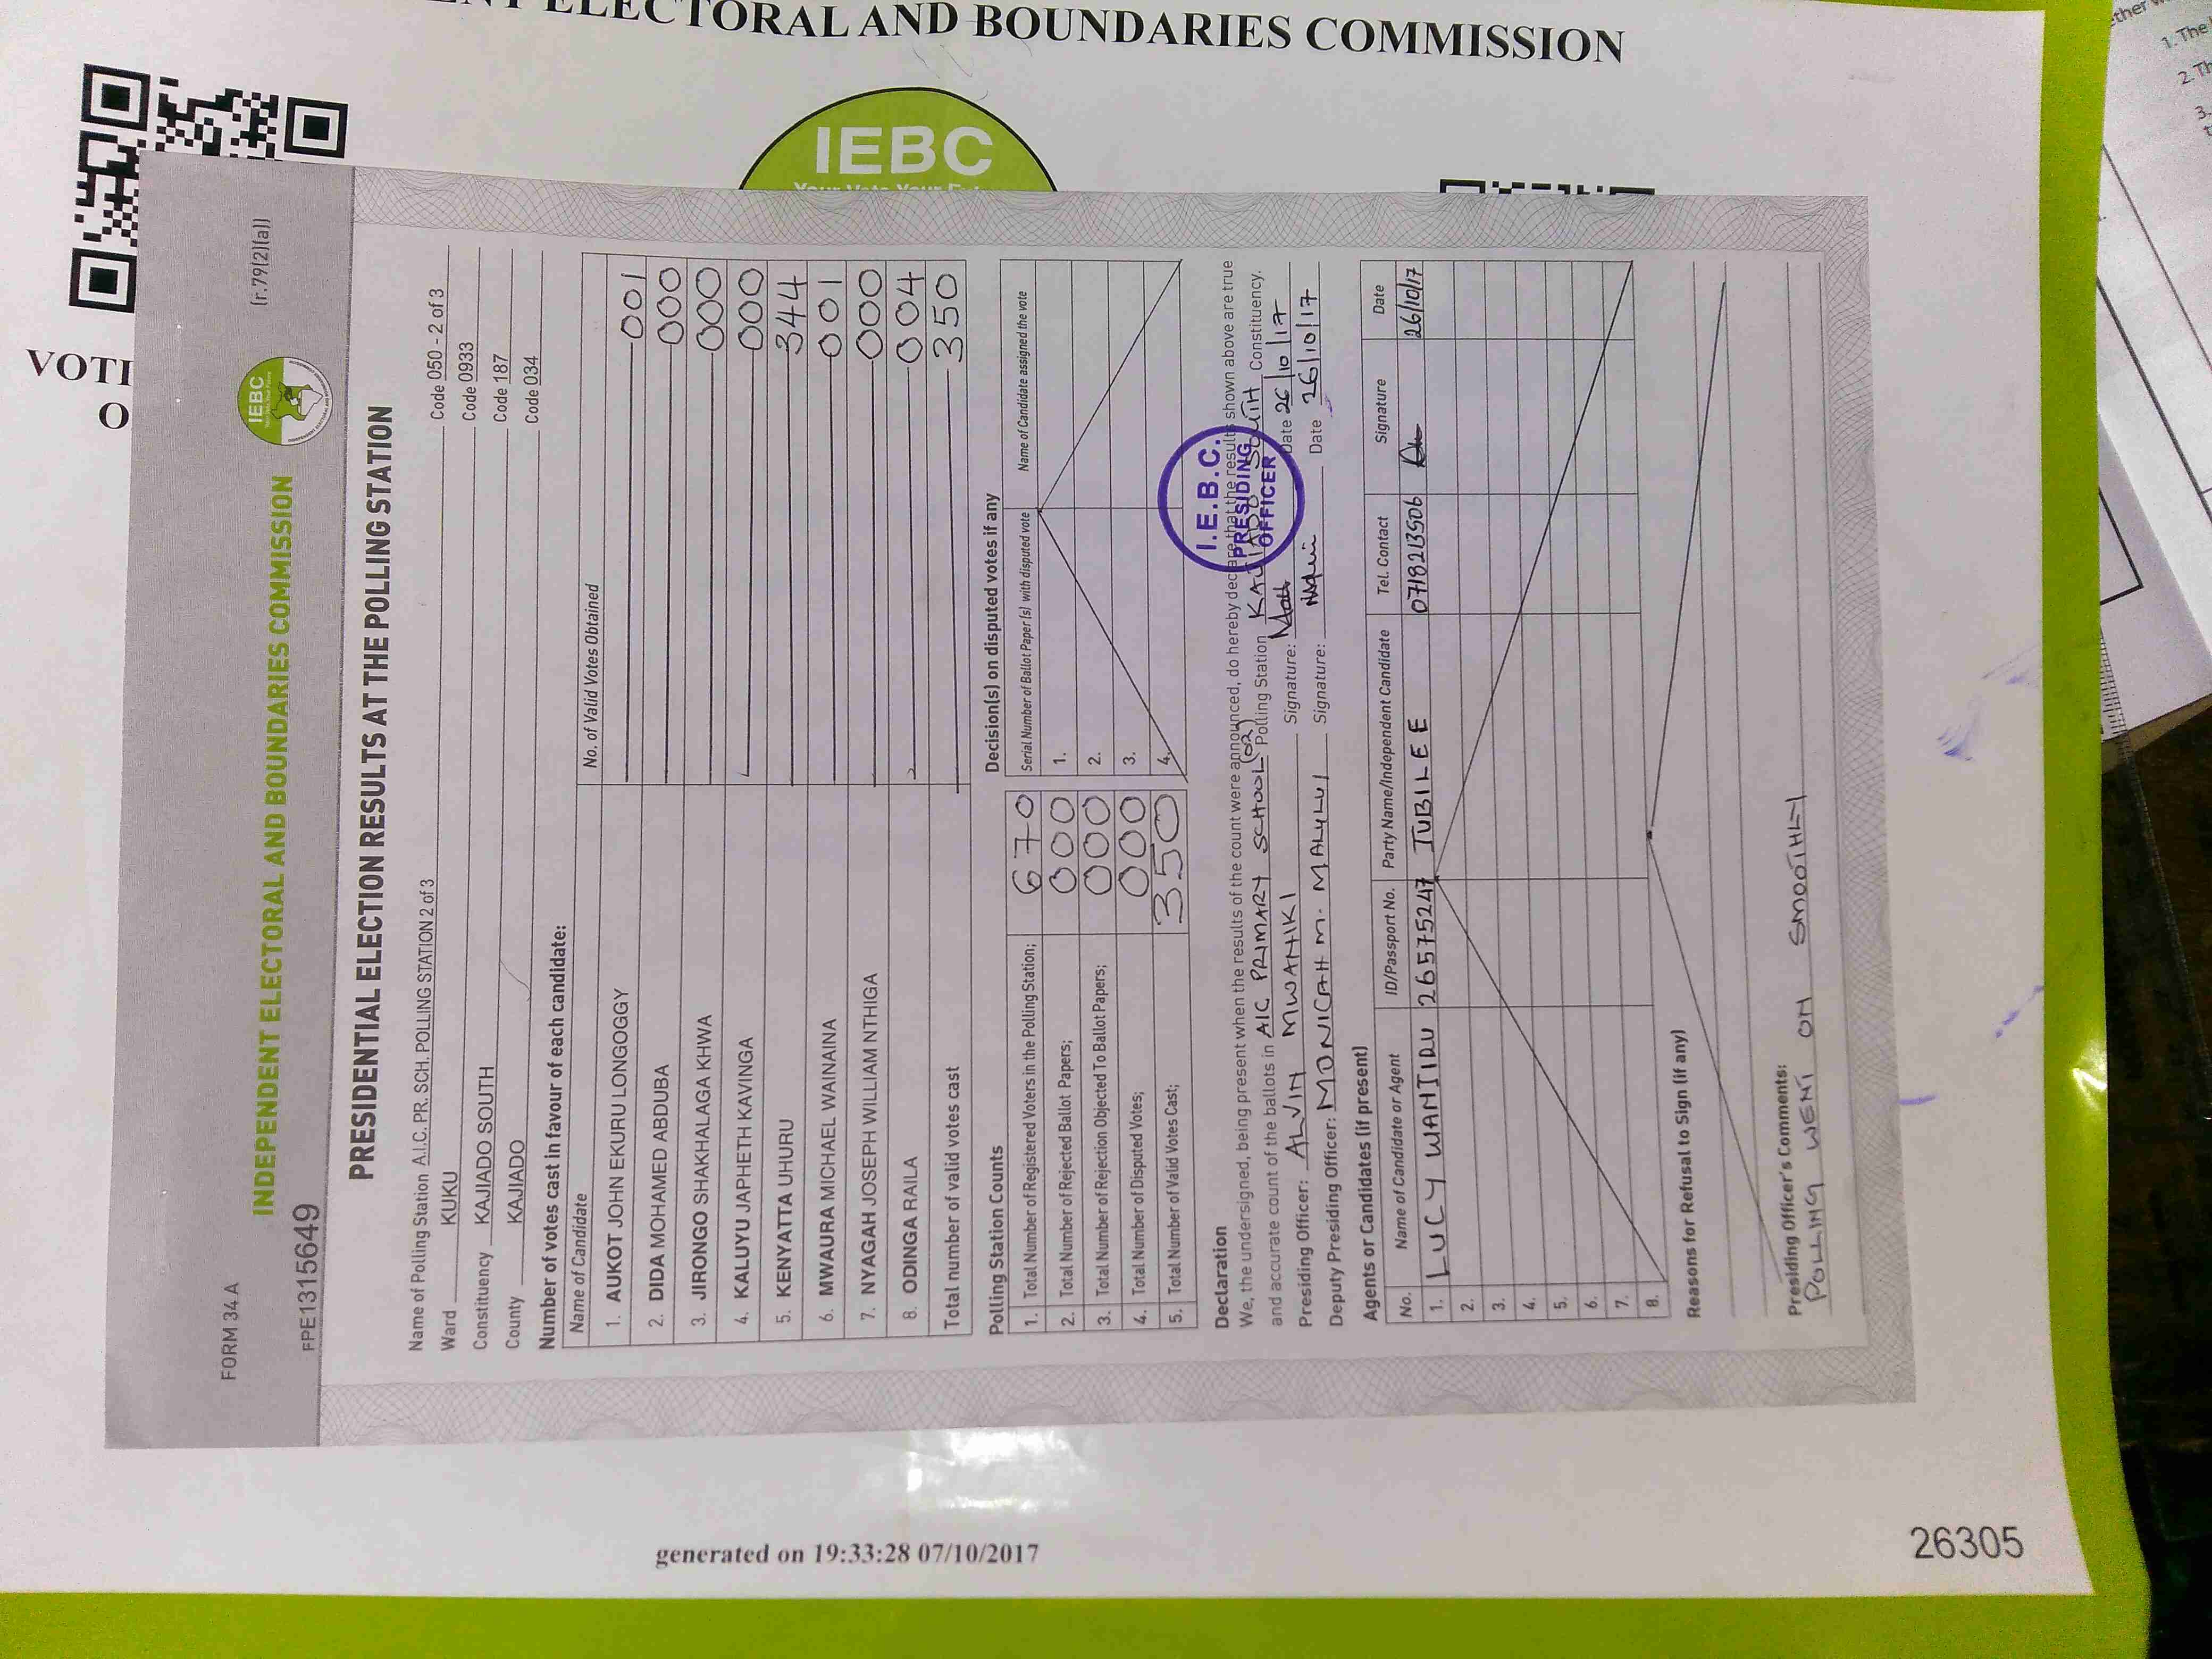 ELECTORAL AND BOUNDARIES COMMISSION
IEBC
VOTI
O
FORM 34 A
(r.79(2)(a))
INDEPENDENT ELECTORAL AND BOUNDARIES COMMISSION
IEBC
FPE1315649
PRESIDENTIAL ELECTION RESULTS AT THE POLLING STATION
Name of Polling Station A.I.C. PR. SCH. POLLING STATION 2 of 3 Code 050 - 2 of 3
Ward KUKU Code 0933
Constituency KAJIADO SOUTH Code 187
County KAJIADO Code 034
Number of votes cast in favour of each candidate:
Name of Candidate No. of Valid Votes Obtained
1. AUKOT JOHN EKURU LONGOGGY 001
2. DIDA MOHAMED ABDUBA 000
3. JIRONGO SHAKHALAGA KHWA 000
4. KALUYU JAPHETH KAVINGA 000
5. KENYATTA UHURU 344
6. MWAURA MICHAEL WAINAINA 001
7. NYAGAH JOSEPH WILLIAM NTHIGA 000
8. ODINGA RAILA 004
Total number of valid votes cast 350
Polling Station Counts
1. Total Number of Registered Voters in the Polling Station; 670
2. Total Number of Rejected Ballot Papers; 000
3. Total Number of Rejection Objected To Ballot Papers; 000
4. Total Number of Disputed Votes; 000
5. Total Number of Valid Votes Cast; 350
Decision(s) on disputed votes if any
Serial Number of Ballot Paper (s) with disputed vote Name of Candidate assigned the vote
1.
2.
3.
4.
Declaration
We, the undersigned, being present when the results of the count were announced, do hereby declare that the results shown above are true
and accurate count of the ballots in AIC PRIMARY SCHOOL (02) Polling Station KAJIADO SOUTH Constituency.
Presiding Officer: ALVIN MWANIKI Signature: Date 26/10/17
Deputy Presiding Officer: MONICAH M. MALULU Signature: Date 26/10/17
I.E.B.C.
PRESIDING
OFFICER
Agents or Candidates (if present)
No. Name of Candidate or Agent ID/Passport No. Party Name/Independent Candidate Tel. Contact Signature Date
1. LUCY WANJIRU 26575247 JUBILEE 0718213506 26/10/17
2.
3.
4.
5.
6.
7.
8.
Reasons for Refusal to Sign (if any)
Presiding Officer's Comments:
POLLING WENT ON SMOOTHLY
generated on 19:33:28 07/10/2017
26305